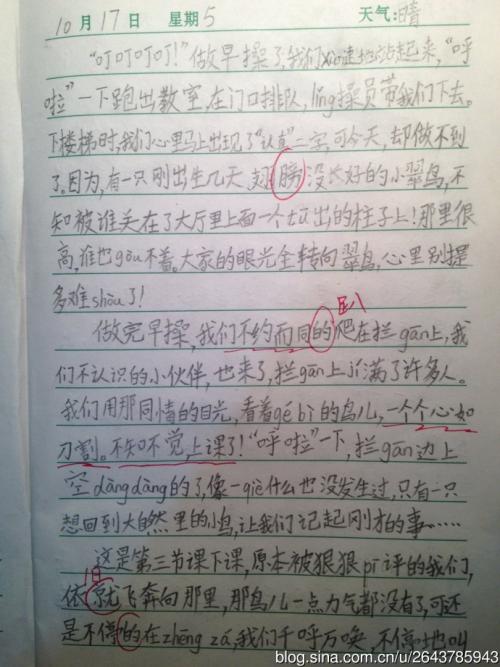 10月17日 星期5 天气:晴
"叮叮叮叮!"做早操了,我们xùn速地站起来,"呼
啦"一下跑出教室,在门口排队,lǐng操员带我们下去。
下楼梯时,我们心里马上出现了"认真"二字,可今天,却做不到
了。因为,有一只刚出生几天,翅膀没长好的小翠鸟,不
知被谁关在了大厅里上面一个tū出的柱子上!那里很
高,谁也gòu不着。大家的眼光全转向翠鸟,心里别提
多难shòu了!
趴
做完早操,我们不约而同的爬在拦gān上,我
们不认识的小伙伴,也来了,拦gān上jǐ满了许多人。
我们用那同情的目光,看着gé bì的鸟儿,一个个心如
刀割。不知不觉上课了!"呼啦"一下,拦gān边上
空dàngdàng的了,像一qiè什么也没发生过,只有一只
想回到大自然里的小鸟,让我们记起刚才的事……
这是第三节课下课,原本被狠狠pī评的我们,
旧
依就飞奔向那里,那鸟儿一点力气都没有了,可还
是不停的在zhēng zá,我们千呼万唤,不停地叫
blog.sina.com.cn/u/2643785943